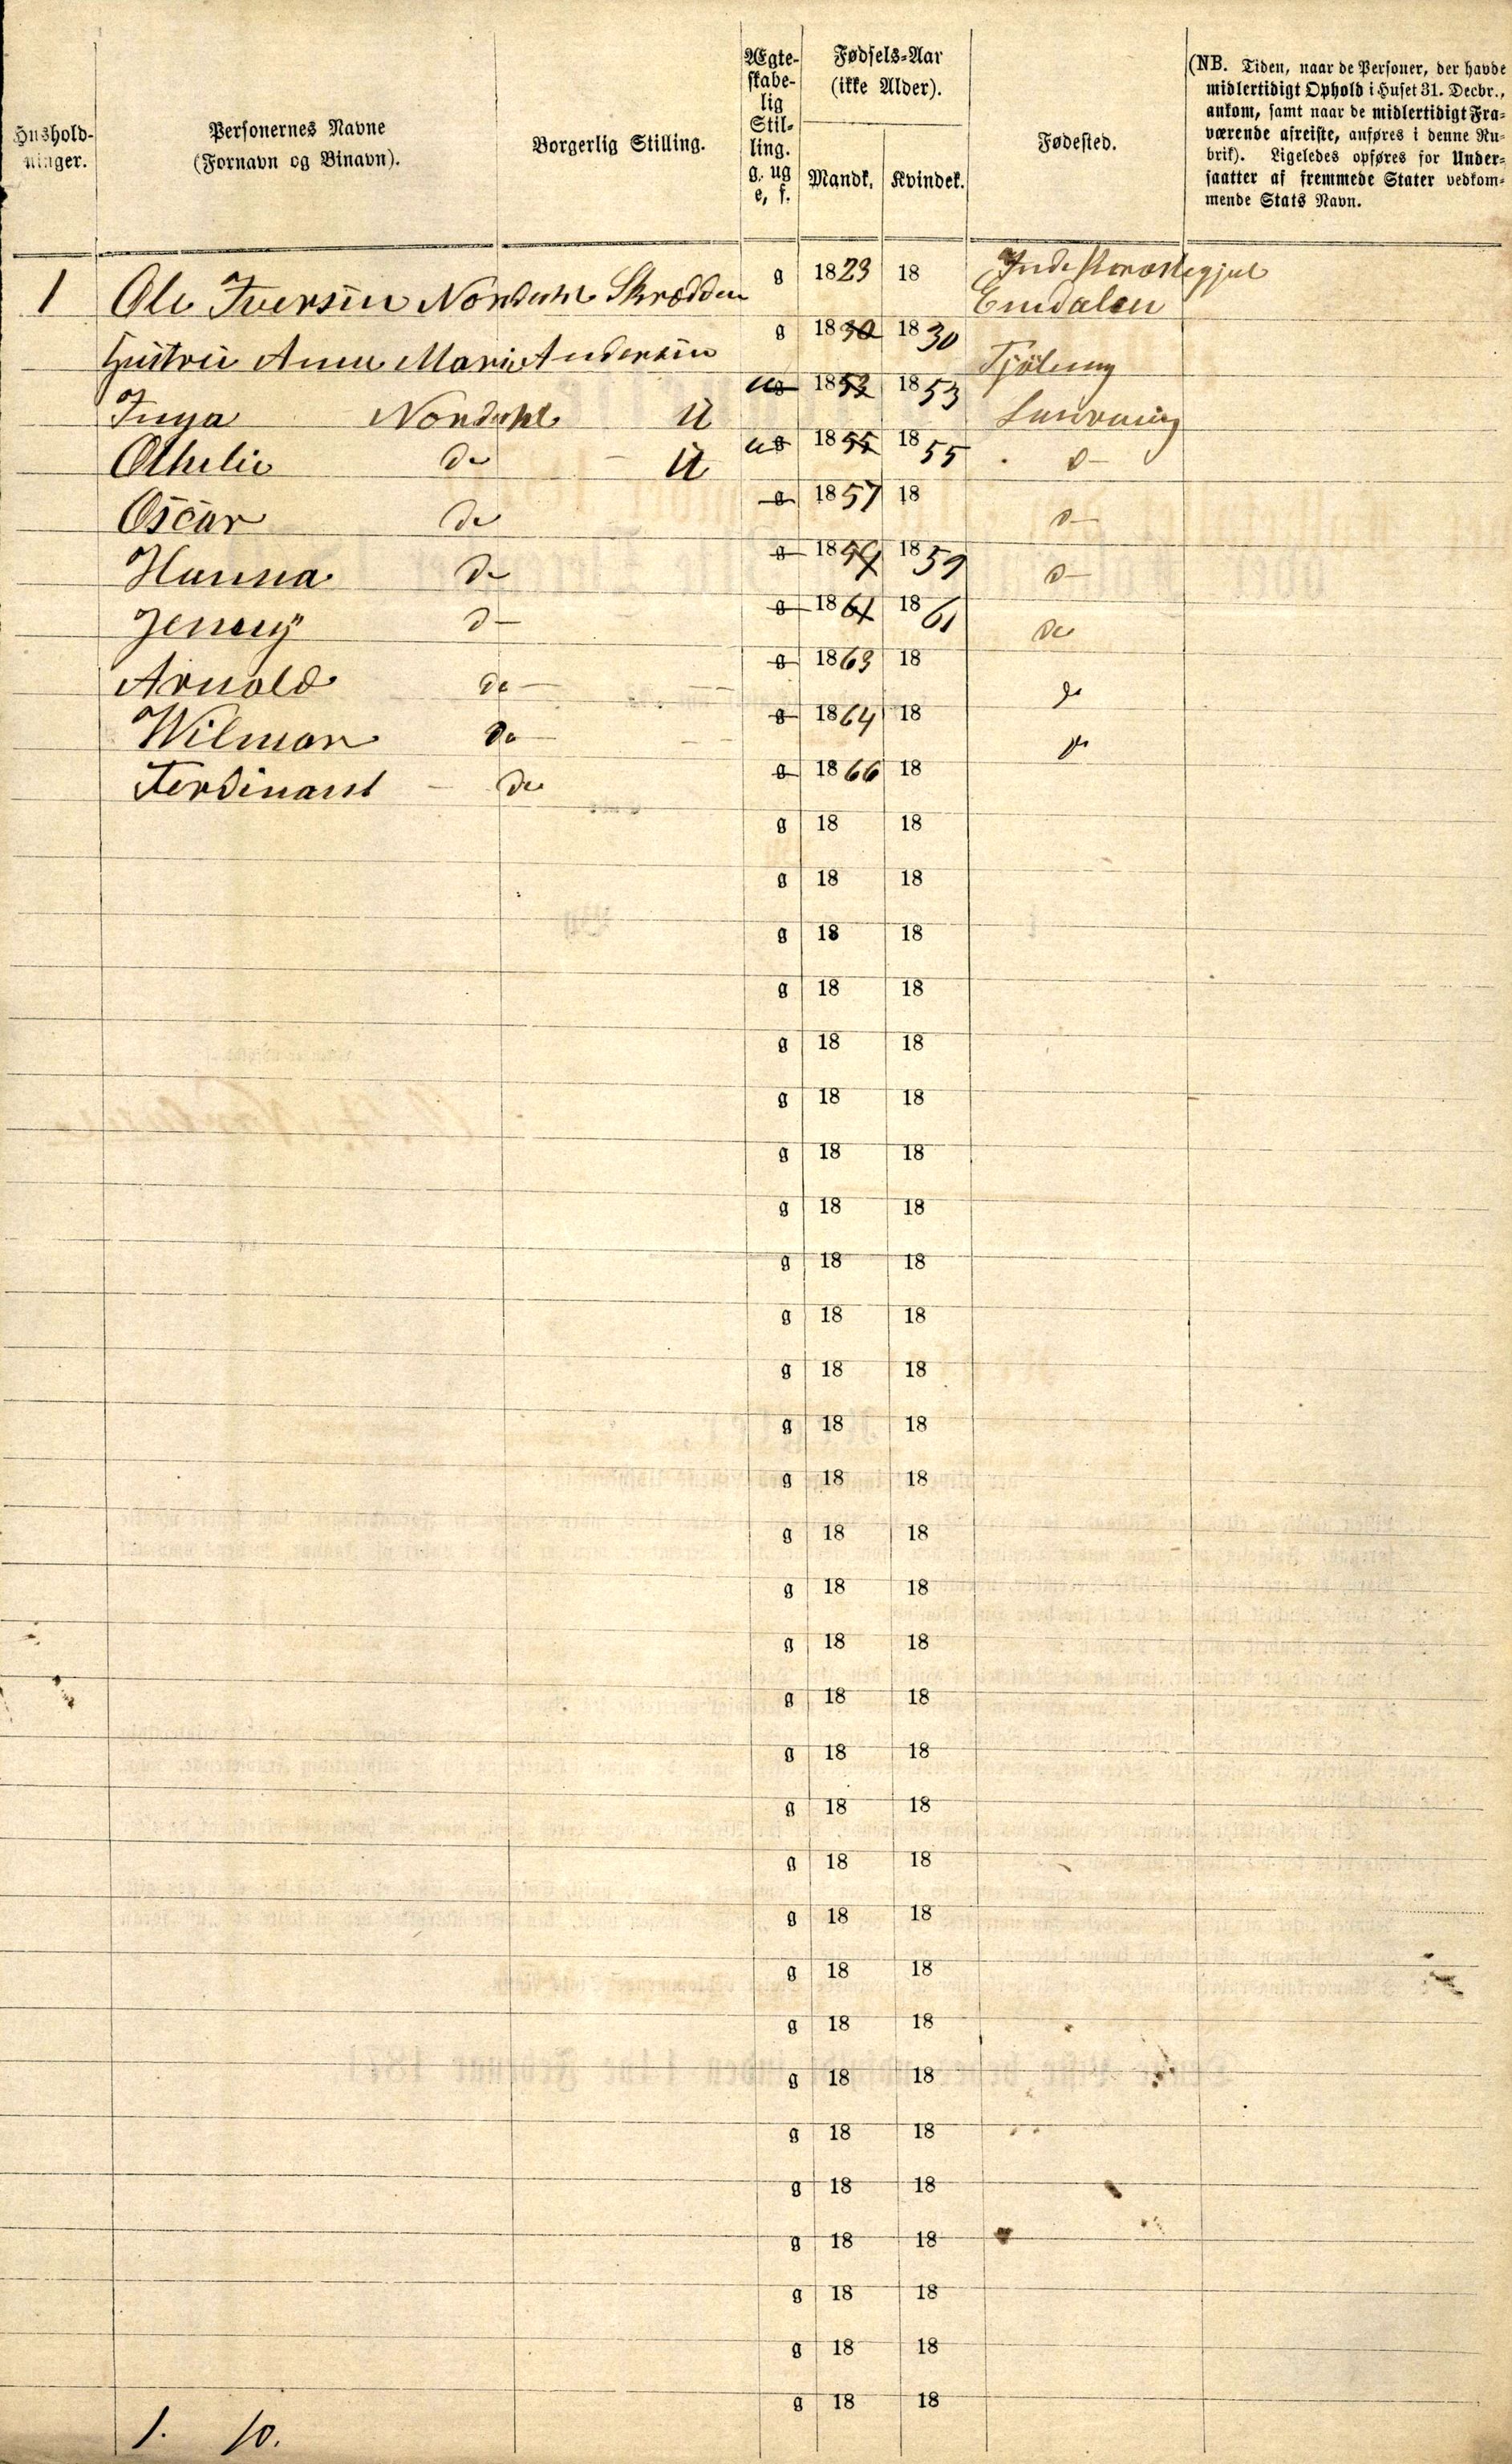 Hushold-
ninger.
Personernes Navne
(Fornavn og Binavn).
Borgerlig Stilling.
Ægte-
skabe-
lig
Stil-
ling.
g. ug
e, f.
Fødsels-Aar
(ikke Alder).
Mandk.
Kvindek.
Fødested.
(NB. Tiden, naar de Personer, der havde
midlertidigt Ophold i Huset 31. Decbr.,
ankom, samt naar de midlertidigt Fra-
værende afreiste, anføres i denne Ru-
brik). Ligeledes opføres for Under-
saatter af fremmede Stater vedkom-
mende Stats Navn.
1 Ole Iversen Nordahl Skrædder g 1823 18
Hustru Anna Marie Andersen g 1830 1830 Tjølling
Inga Nordahl U ug 1853 1853 Laurvig
Othelie do U ug 1855 1855 do
Oscar do g 1857 18 do
Hanna do g 1859 1859 do
Jenny do g 1861 1861 do
Arnold do g 1863 18 do
Wilmar do g 1864 18 do
Ferdinant do g 1866 18
g 18 18
g 18 18
g 18 18
g 18 18
g 18 18
g 18 18
g 18 18
g 18 18
g 18 18
g 18 18
g 18 18
g 18 18
g 18 18
g 18 18
g 18 18
g 18 18
g 18 18
g 18 18
g 18 18
g 18 18
g 18 18
g 18 18
g 18 18
g 18 18
g 18 18
g 18 18
g 18 18
g 18 18
g 18 18
g 18 18
1. 10.